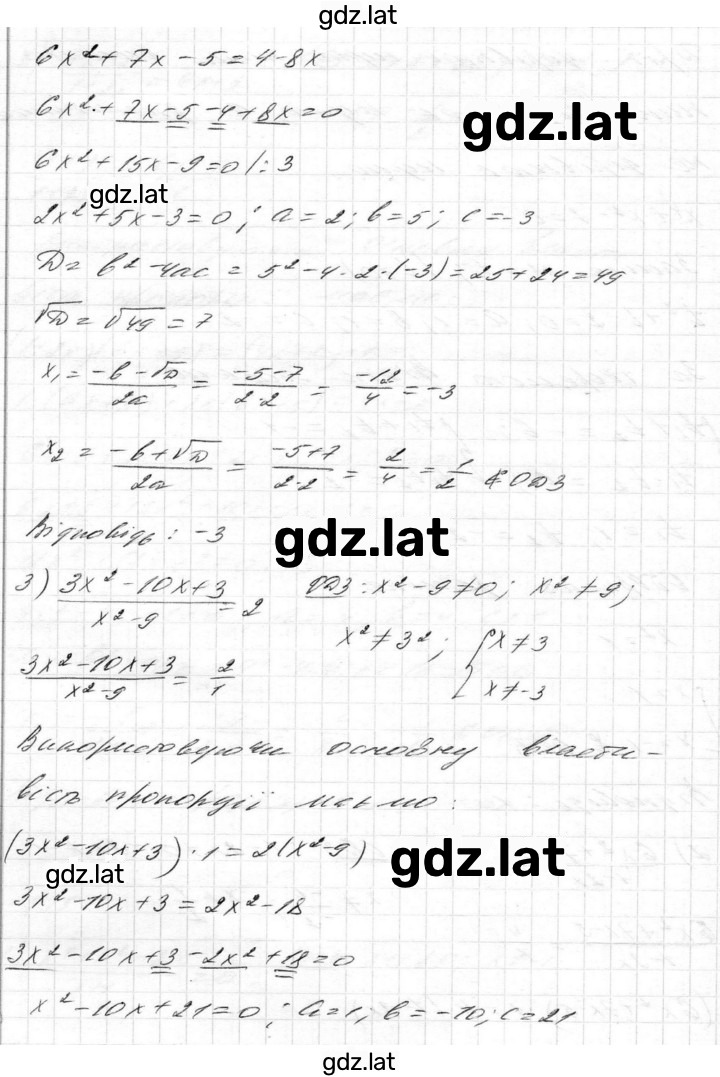 gdz.lat
6x² + 7x - 5 = 4 - 8x
6x² + 7x - 5 - 4 + 8x = 0
gdz.lat
6x² + 15x - 9 = 0 | : 3
gdz.lat
2x² + 5x - 3 = 0; a = 2; b = 5; c = -3
D = b² - 4ac = 5² - 4 · 2 · (-3) = 25 + 24 = 49
√D = √49 = 7
x₁ = (-b - √D)/(2a) = (-5 - 7)/(2·2) = -12/4 = -3
x₂ = (-b + √D)/(2a) = (-5 + 7)/(2·2) = 2/4 = 1/2 ∉ ОДЗ
Відповідь: -3
gdz.lat
3) (3x² - 10x + 3)/(x² - 9) = 2 ОДЗ: x² - 9 ≠ 0; x² ≠ 9;
x² ≠ 3²; { x ≠ 3
x ≠ -3
(3x² - 10x + 3)/(x² - 9) = 2/1
Використовуючи основну власти-
вість пропорції маємо:
(3x² - 10x + 3) · 1 = 2(x² - 9)
gdz.lat
gdz.lat
3x² - 10x + 3 = 2x² - 18
3x² - 10x + 3 - 2x² + 18 = 0
x² - 10x + 21 = 0; a = 1; b = -10; c = 21
gdz.lat